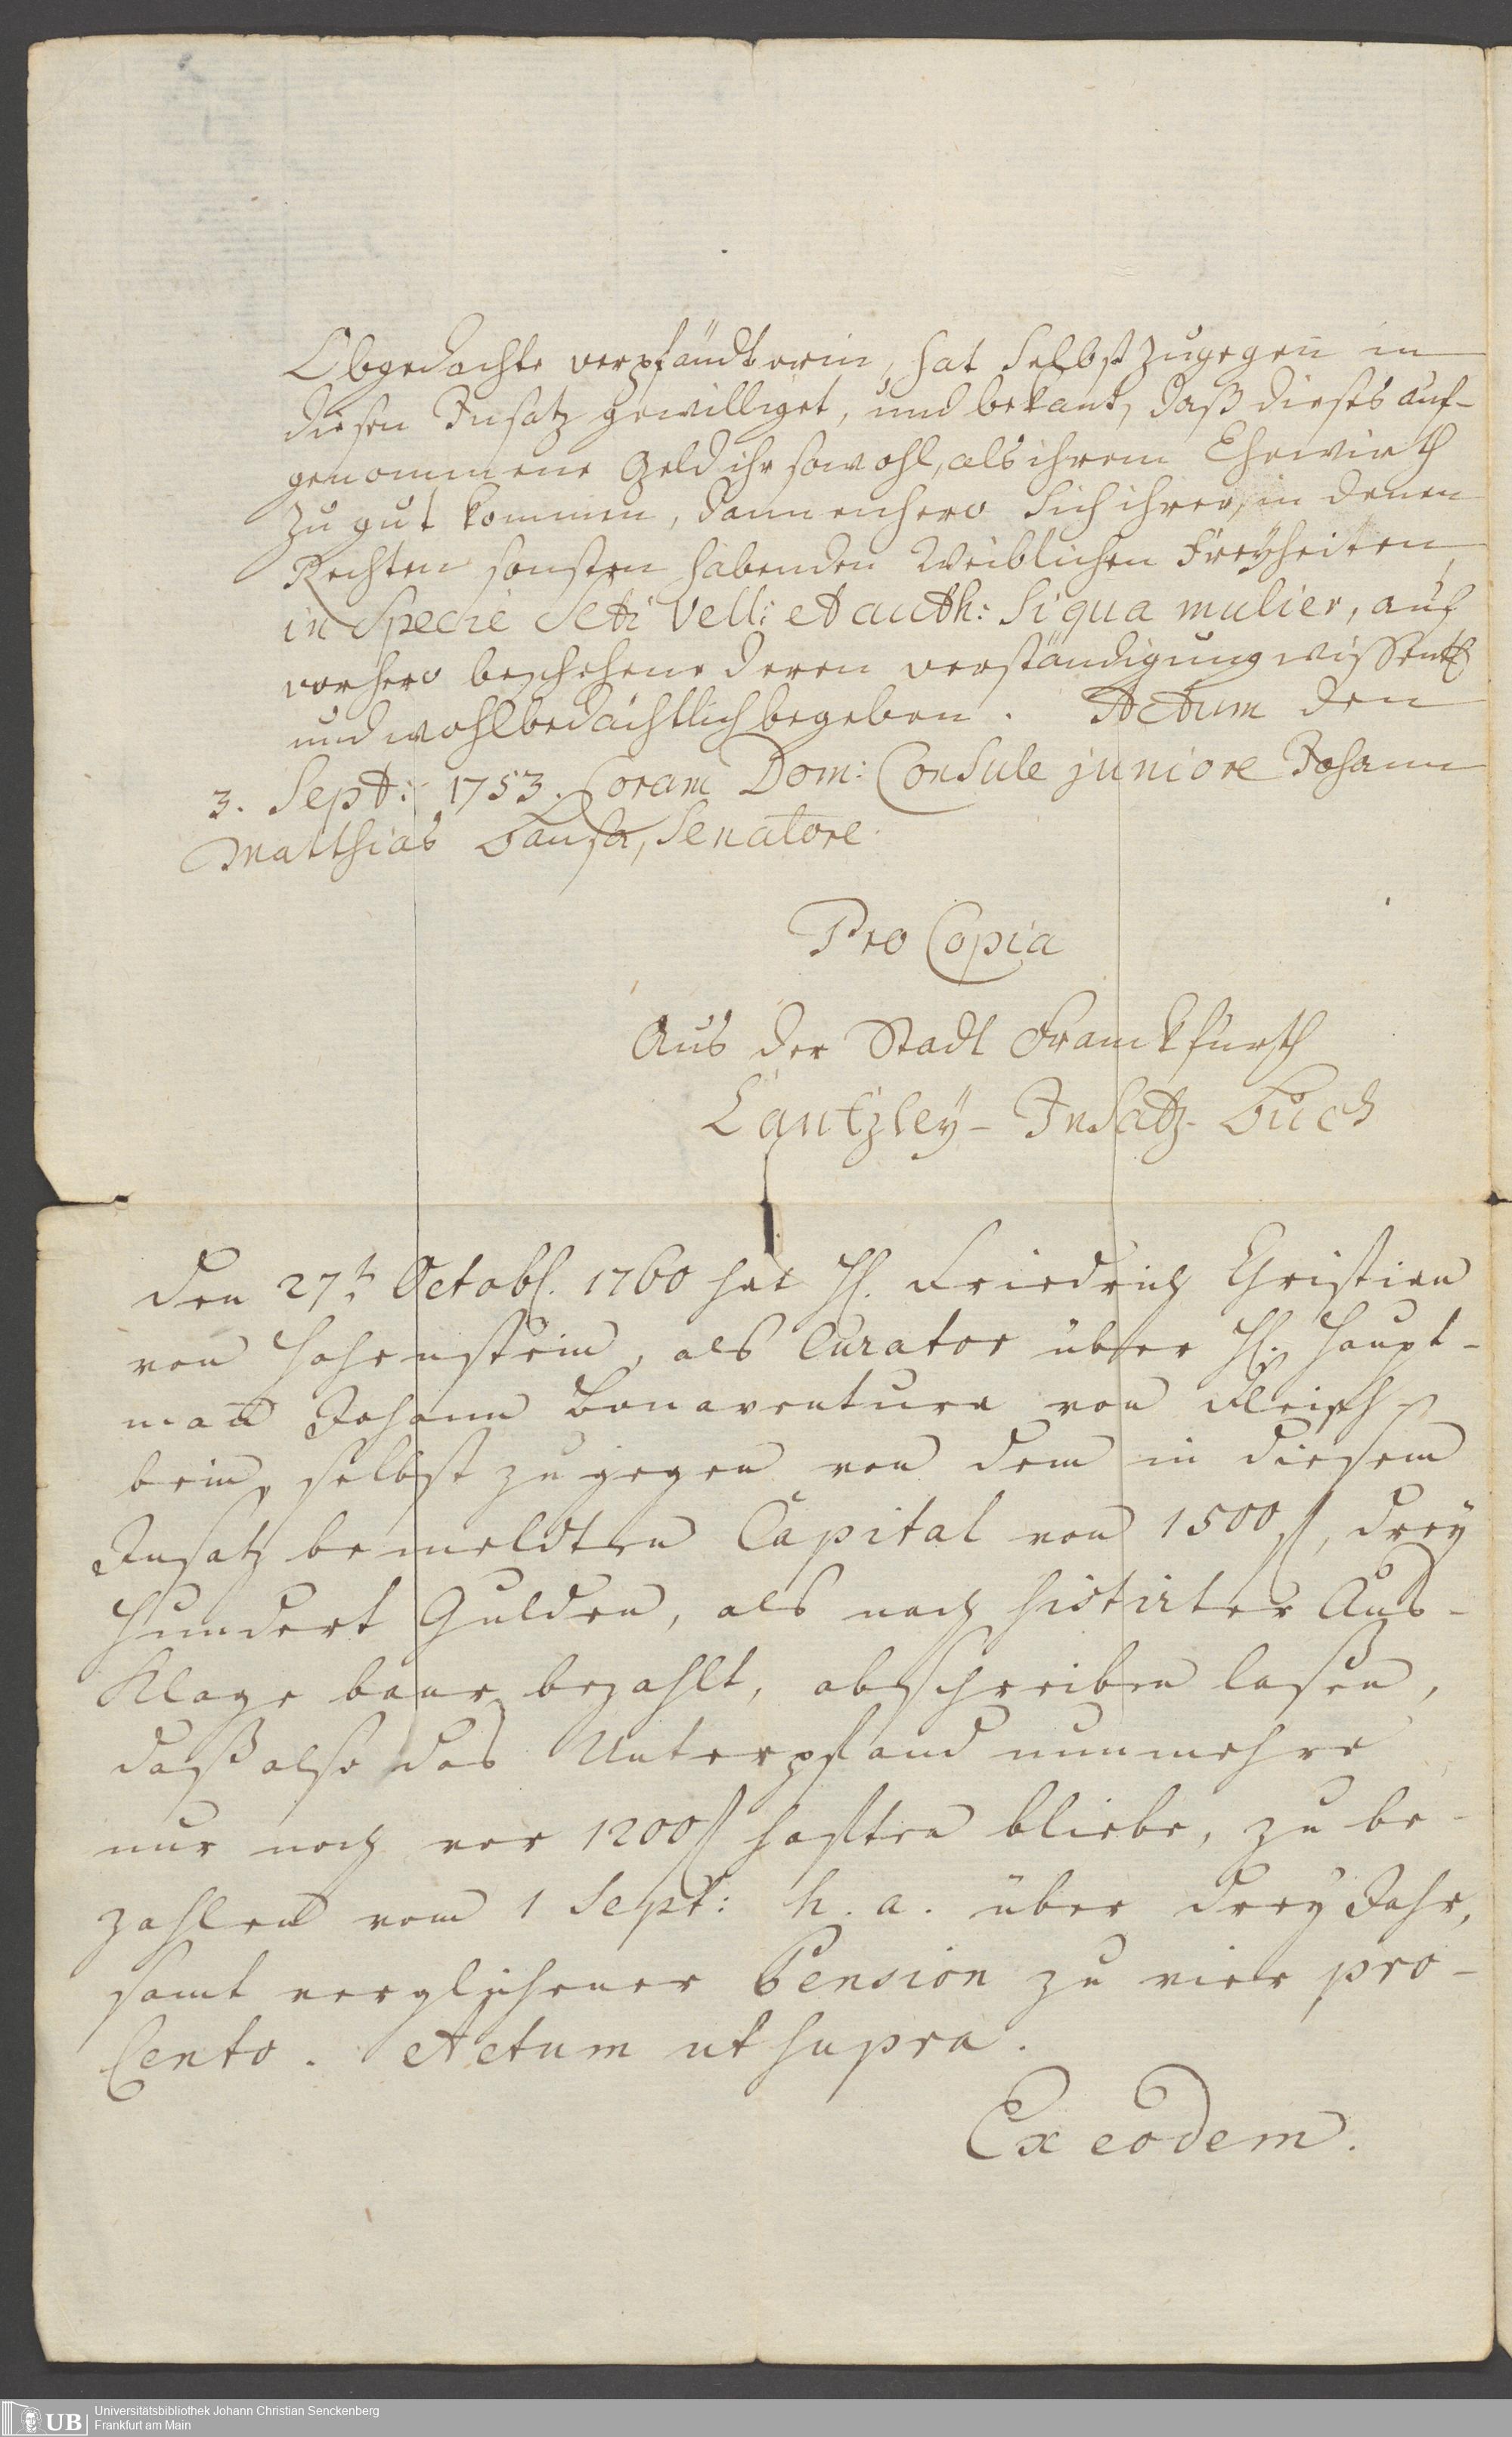 Obgedachte verpfändterin, hat Selbst zugegen in
diesen Insatz gewilliget, und bekant, daß dieses auf-
genommene Geld ihr sowohl, als ihrem Ehewirth
zu gut kommen, dannenhero Sich ihrer, in denen
Rechten sonsten habenden Weiblichen Freyheiten
in Specie SCti Vell: et auth: Si qua mulier, auf
vorhero beschehene deren verständigung wissentl
und wohlbedächtlich begeben. Actum den
3. Sept: 1753. Coram Dom: Consule juniore Johann
Matthias Bansa, Senatore.
Pro Copia
Aus der Stadt Franckfurth
Cantzley-Insatz-Buch
Den 27t. Octobr. 1760 hat H. Friedrich Christian
von Hohenstein, als Curator über H. Haupt-
mañ Johann Bonaventura von Fleisch-
bein, selbst zugegen von dem in diesem
Insatz bemeldten Capital von 1500 fl, drey
Hundert Gulden, als nach sistirter Aus-
Klage baar bezahlt, abschreiben lasen,
daß also das Unterpfand nunmehro
nur noch vor 1200 fl haften bliebe, zu be-
zahlen vom 1 Sept: h. a. über drey Jahr,
samt verglichener Pension zu vier pro-
Cento. Actum ut supra.
Ex eodem.
UB
Universitätsbibliothek Johann Christian Senckenberg
Frankfurt am Main